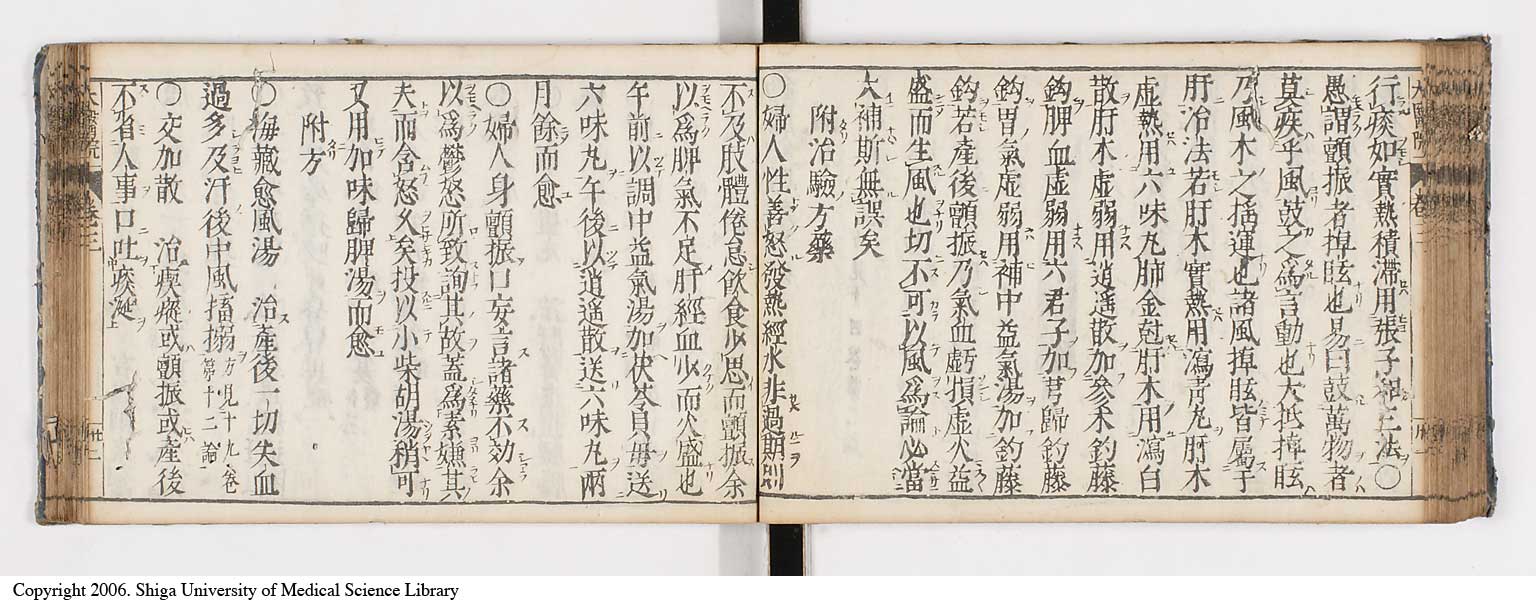 行痰如實熱積滯用張子和三法〇
愚謂顫振者掉眩也易曰鼓萬物者
莫疾乎風鼓之爲言動也大抵掉眩
乃風木之揺運也諸風掉眩皆屬于
肝治法若肝木實熱用瀉青丸肝木
虚熱用六味丸肺金尅肝木用瀉白
散肝木虚弱用逍遥散加參朮釣藤
鈎脾血虚弱用六君子加芎歸釣藤
鈎胃氣虚弱用補中益氣湯加釣藤
鈎若產後顫振乃氣血虧損虚火益
盛而生風也切不可以風爲論必當
大補斯無誤矣
附治驗方藥
〇婦人性善怒發熱經水非過期則
不及肢體倦怠飲食少思而顫振余
以爲脾氣不足肝經血少而火盛也
午前以調中益氣湯加茯苓貝母送
六味丸午後以逍遥散送六味丸兩
月餘而愈
〇婦人身顫振口妄言諸藥不効余
以爲鬱怒所致詢其故蓋爲素嫌其
夫而含怒久矣投以小柴胡湯稍可
又用加味歸脾湯而愈
附方
〇海藏愈風湯 治產後一切失血
過多及汗後中風搐搦方見十九卷第十二論
〇交加散 治瘈瘲或顫振或產後
不省人事口吐痰涎
Copyright 2006. Shiga University of Medical Science Library